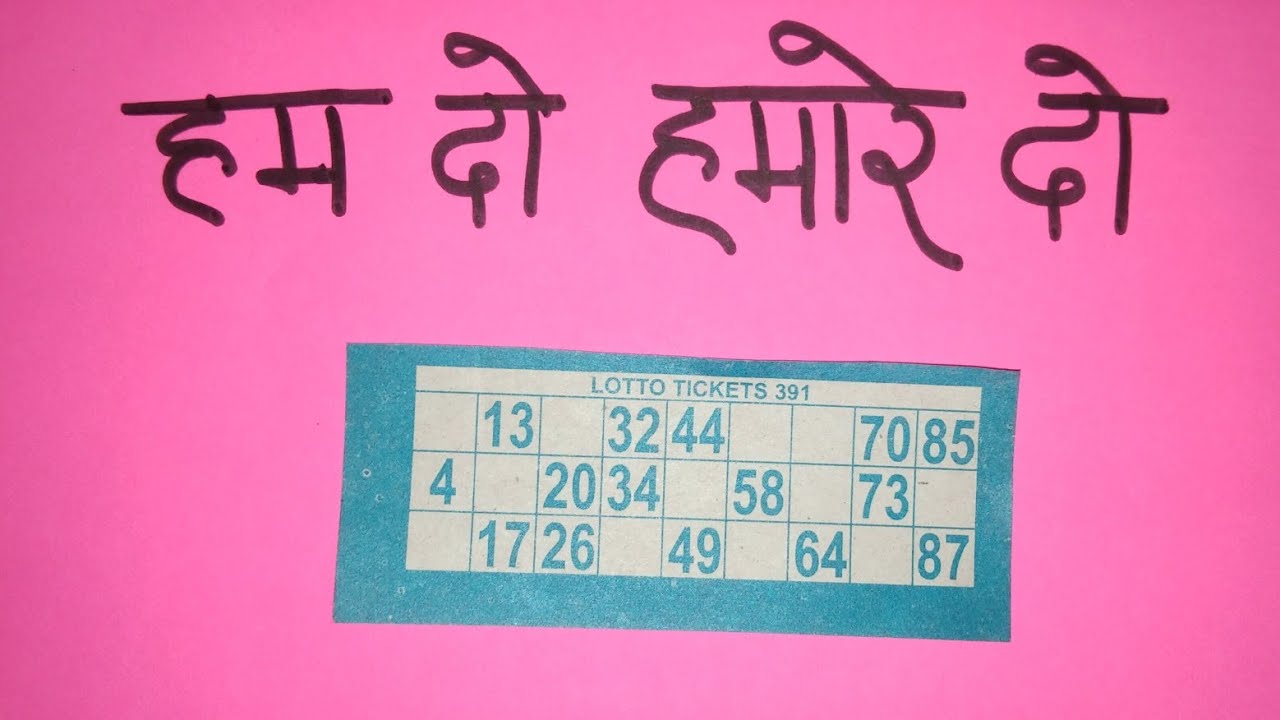 हम दो हमारे दो
LOTTO TICKETS 391
13 32 44 70 85
4 20 34 58 73
17 26 49 64 87